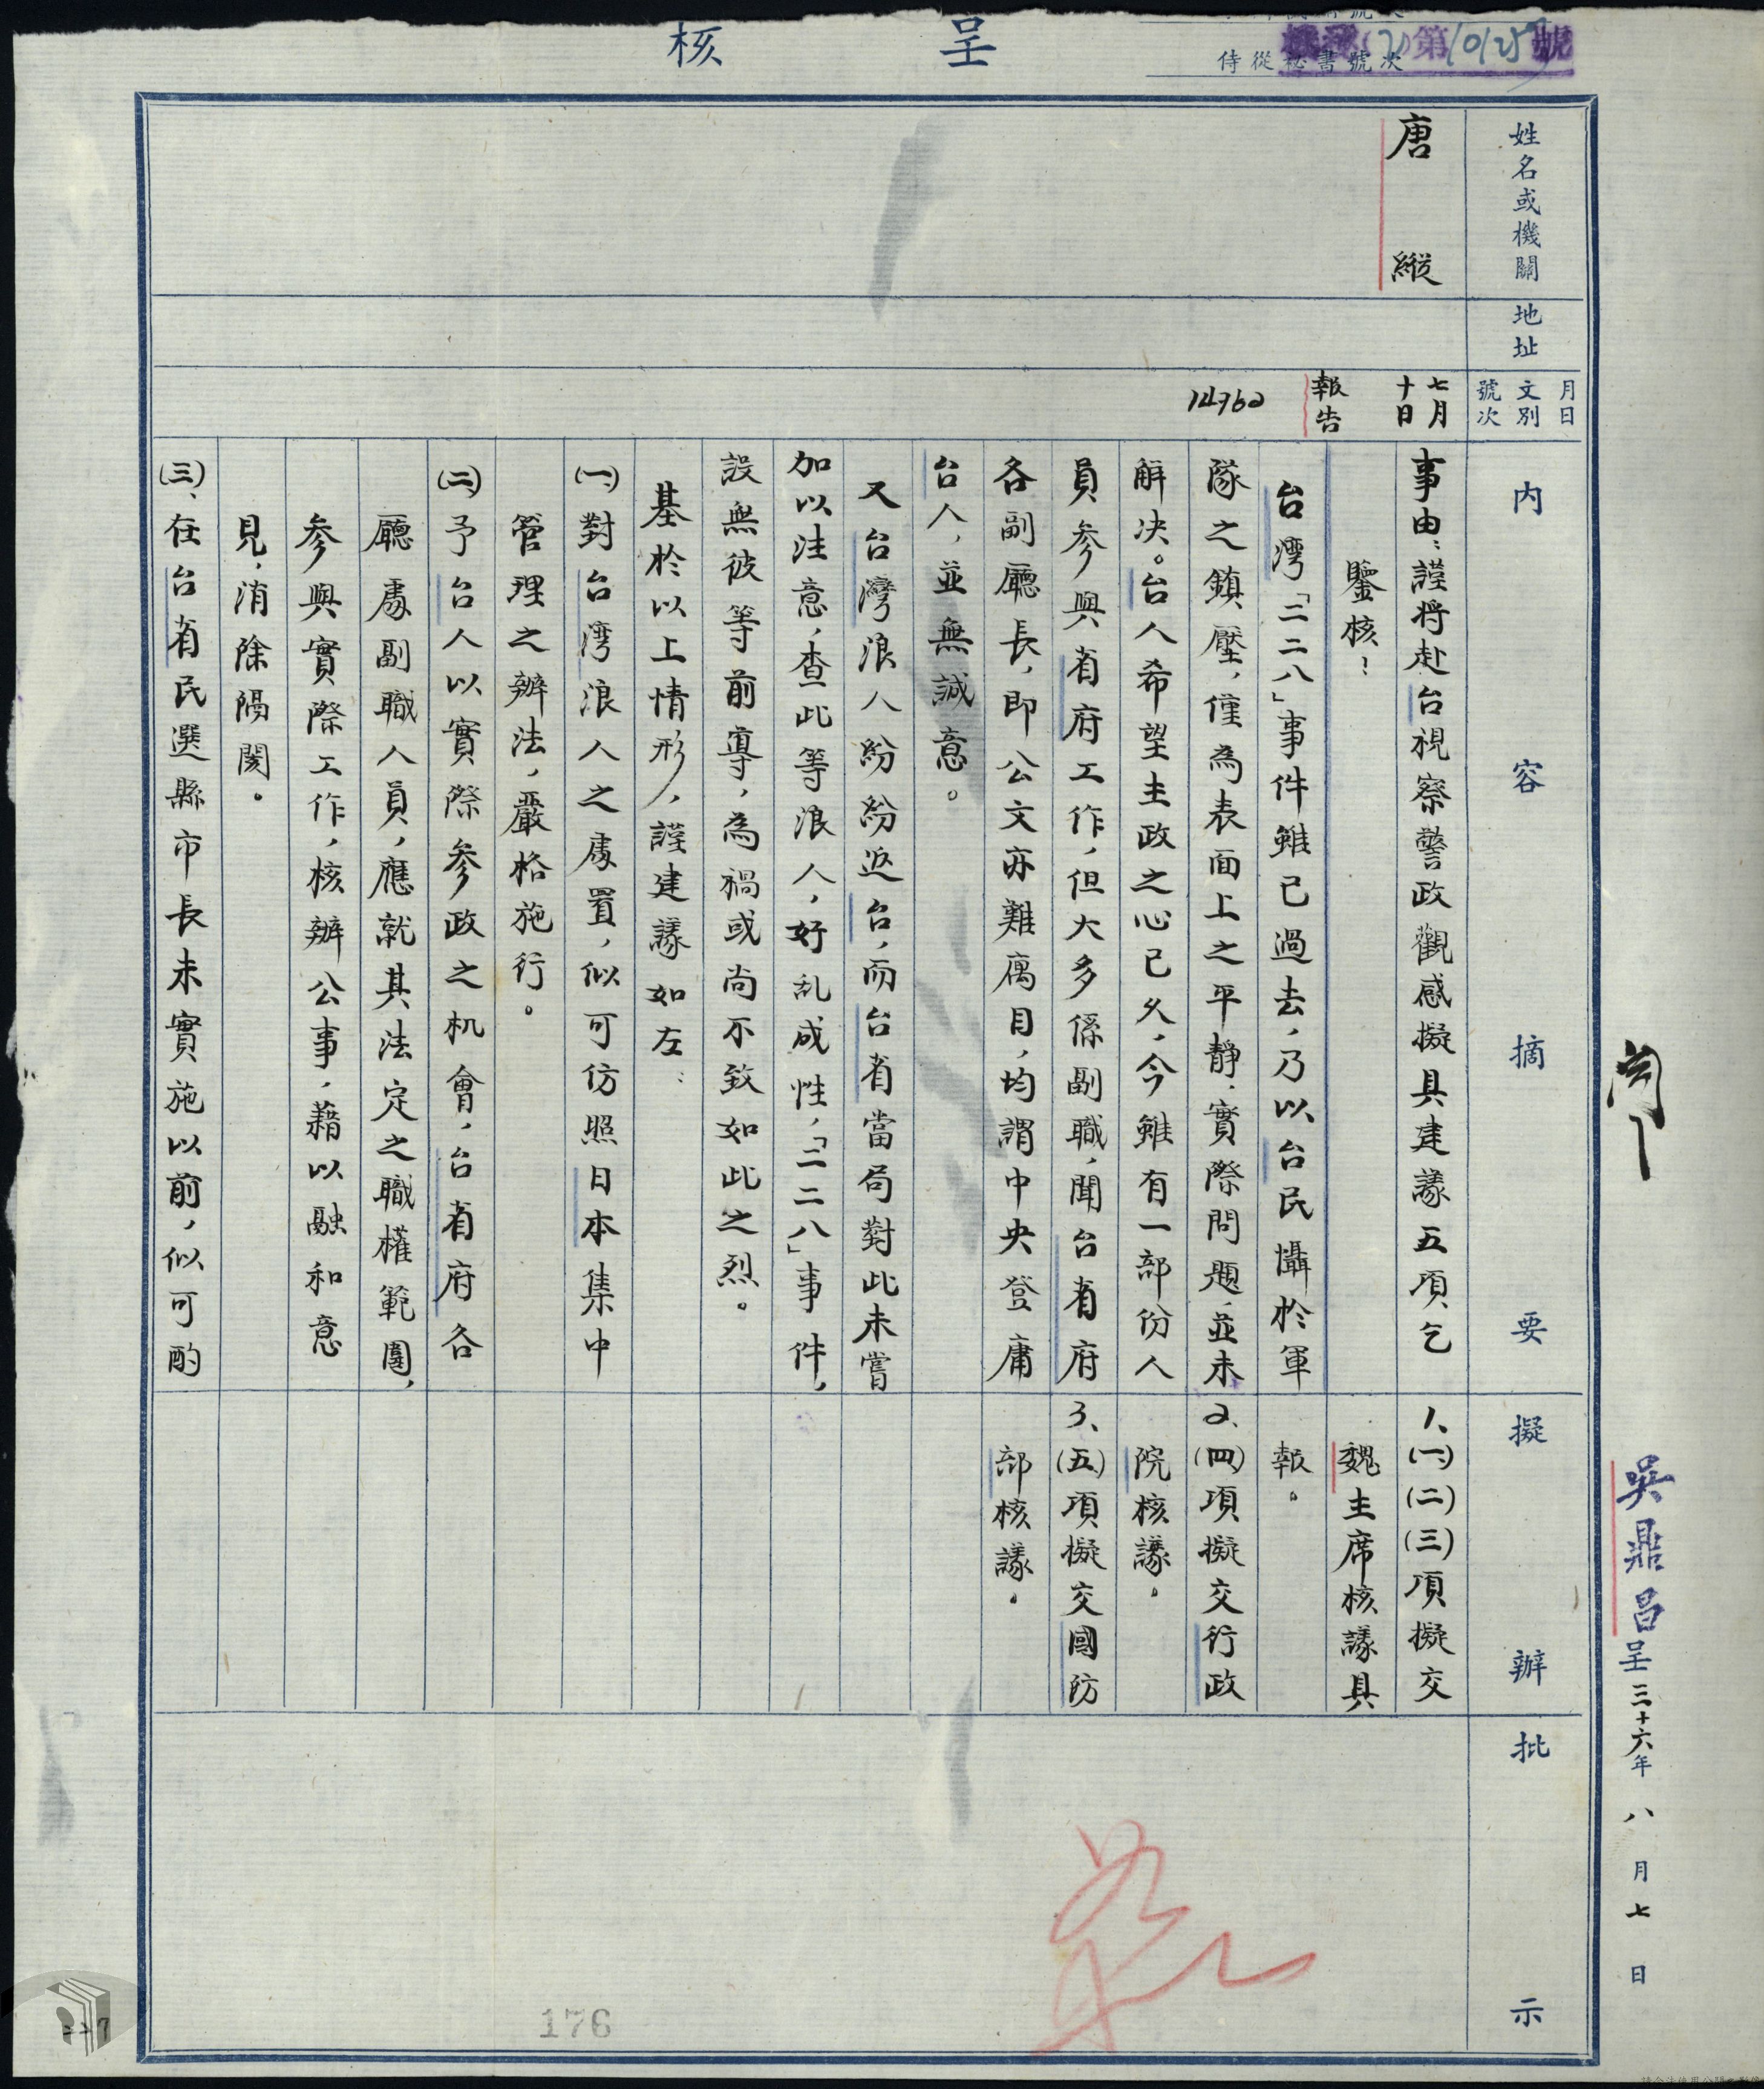 呈核
侍從秘書號次
機秘(乙)第10125號
吳鼎昌呈三十六年八月七日
姓名或機關
地址
月日
文別
號次
內容摘要
擬辦
批示
唐縱
七月
十日
報告
14762
事由：謹將赴台視察警政觀感擬具建議五項乞
鑒核！
台灣「二二八」事件雖已過去，乃以台民懾於軍
隊之鎮壓，僅為表面上之平靜，實際問題，並未
解決。台人希望主政之心已久，今雖有一部份人
員參與省府工作，但大多係副職，聞台省府
各副廳長，即公文亦難寓目，均謂中央登庸
台人，並無誠意。
又台灣浪人紛紛返台，而台省當局對此未嘗
加以注意，查此等浪人，好乱成性，「二二八」事件，
設無彼等前導，為禍或尚不致如此之烈。
基於以上情形，謹建議如左：
㈠對台灣浪人之處置，似可仿照日本集中
管理之辦法，嚴格施行。
㈡予台人以實際參政之机會，台省府各
廳處副職人員，應就其法定之職權範圍，
參與實際工作，核辦公事，藉以融和意
見，消除隔閡。
㈢、在台省民選縣市長未實施以前，似可酌
1、㈠(二)(三)項擬交
魏主席核議具
報。
2、(四)項擬交行政
院核議。
3、(五)項擬交國防
部核議。
176